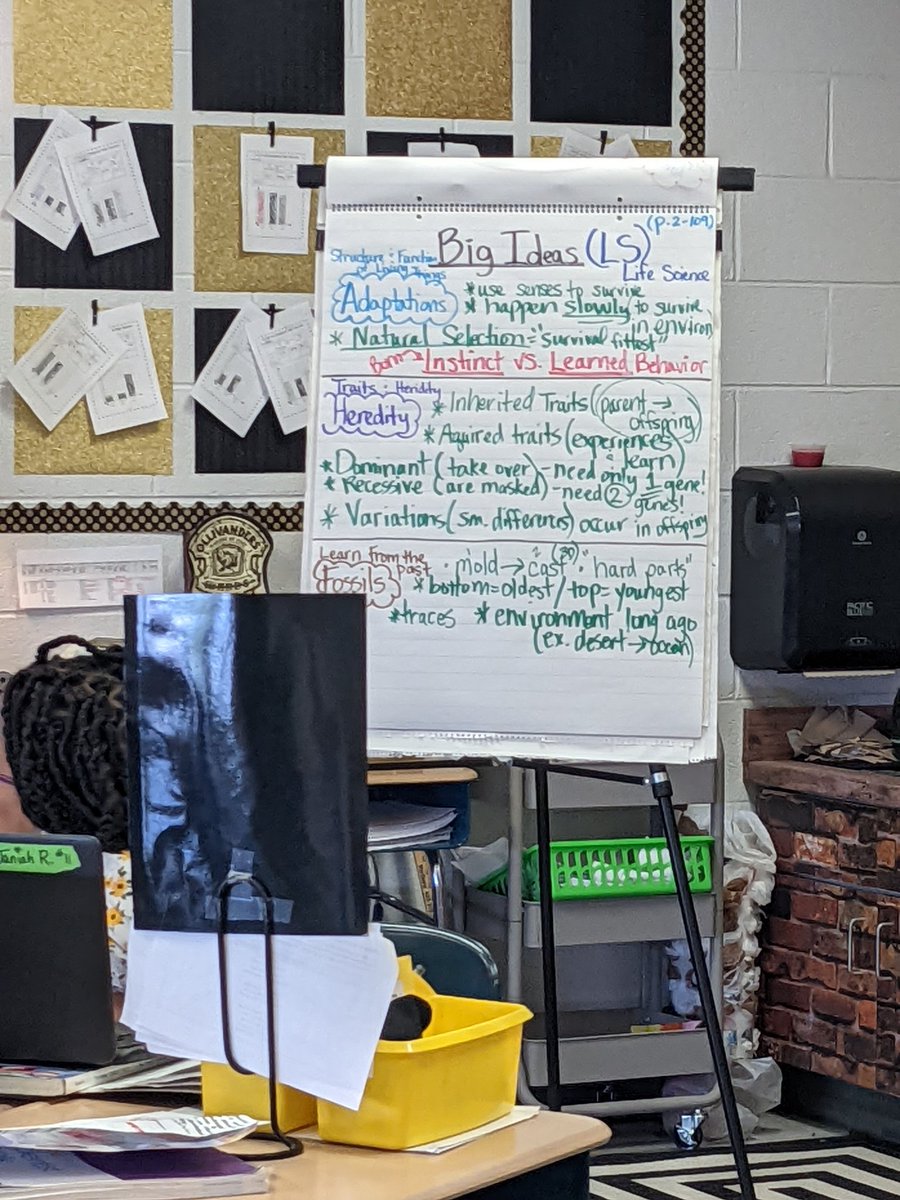 (p.2-109)
Big Ideas (LS)
Life Science
Structure : Function
of Living Things
Adaptations
* use senses to survive
* happen slowly to survive
in environ
* Natural Selection = "survival fittest"
Born → Instinct vs. Learned Behavior
Traits : Heridity
Heredity
* Inherited Traits (parent →
offspring)
* Aquired traits (experiences
learn)
* Dominant (take over) - need only 1 gene!
* Recessive (are masked) - need 2
genes!
* Variations (sm. differences) occur in offspring
Learn from the
past
Fossils
• mold → cast (3D) • "hard parts"
* bottom = oldest / top = youngest
* traces * environment long ago
(ex. desert → ocean)
OLLIVANDERS
Janiah R. #11